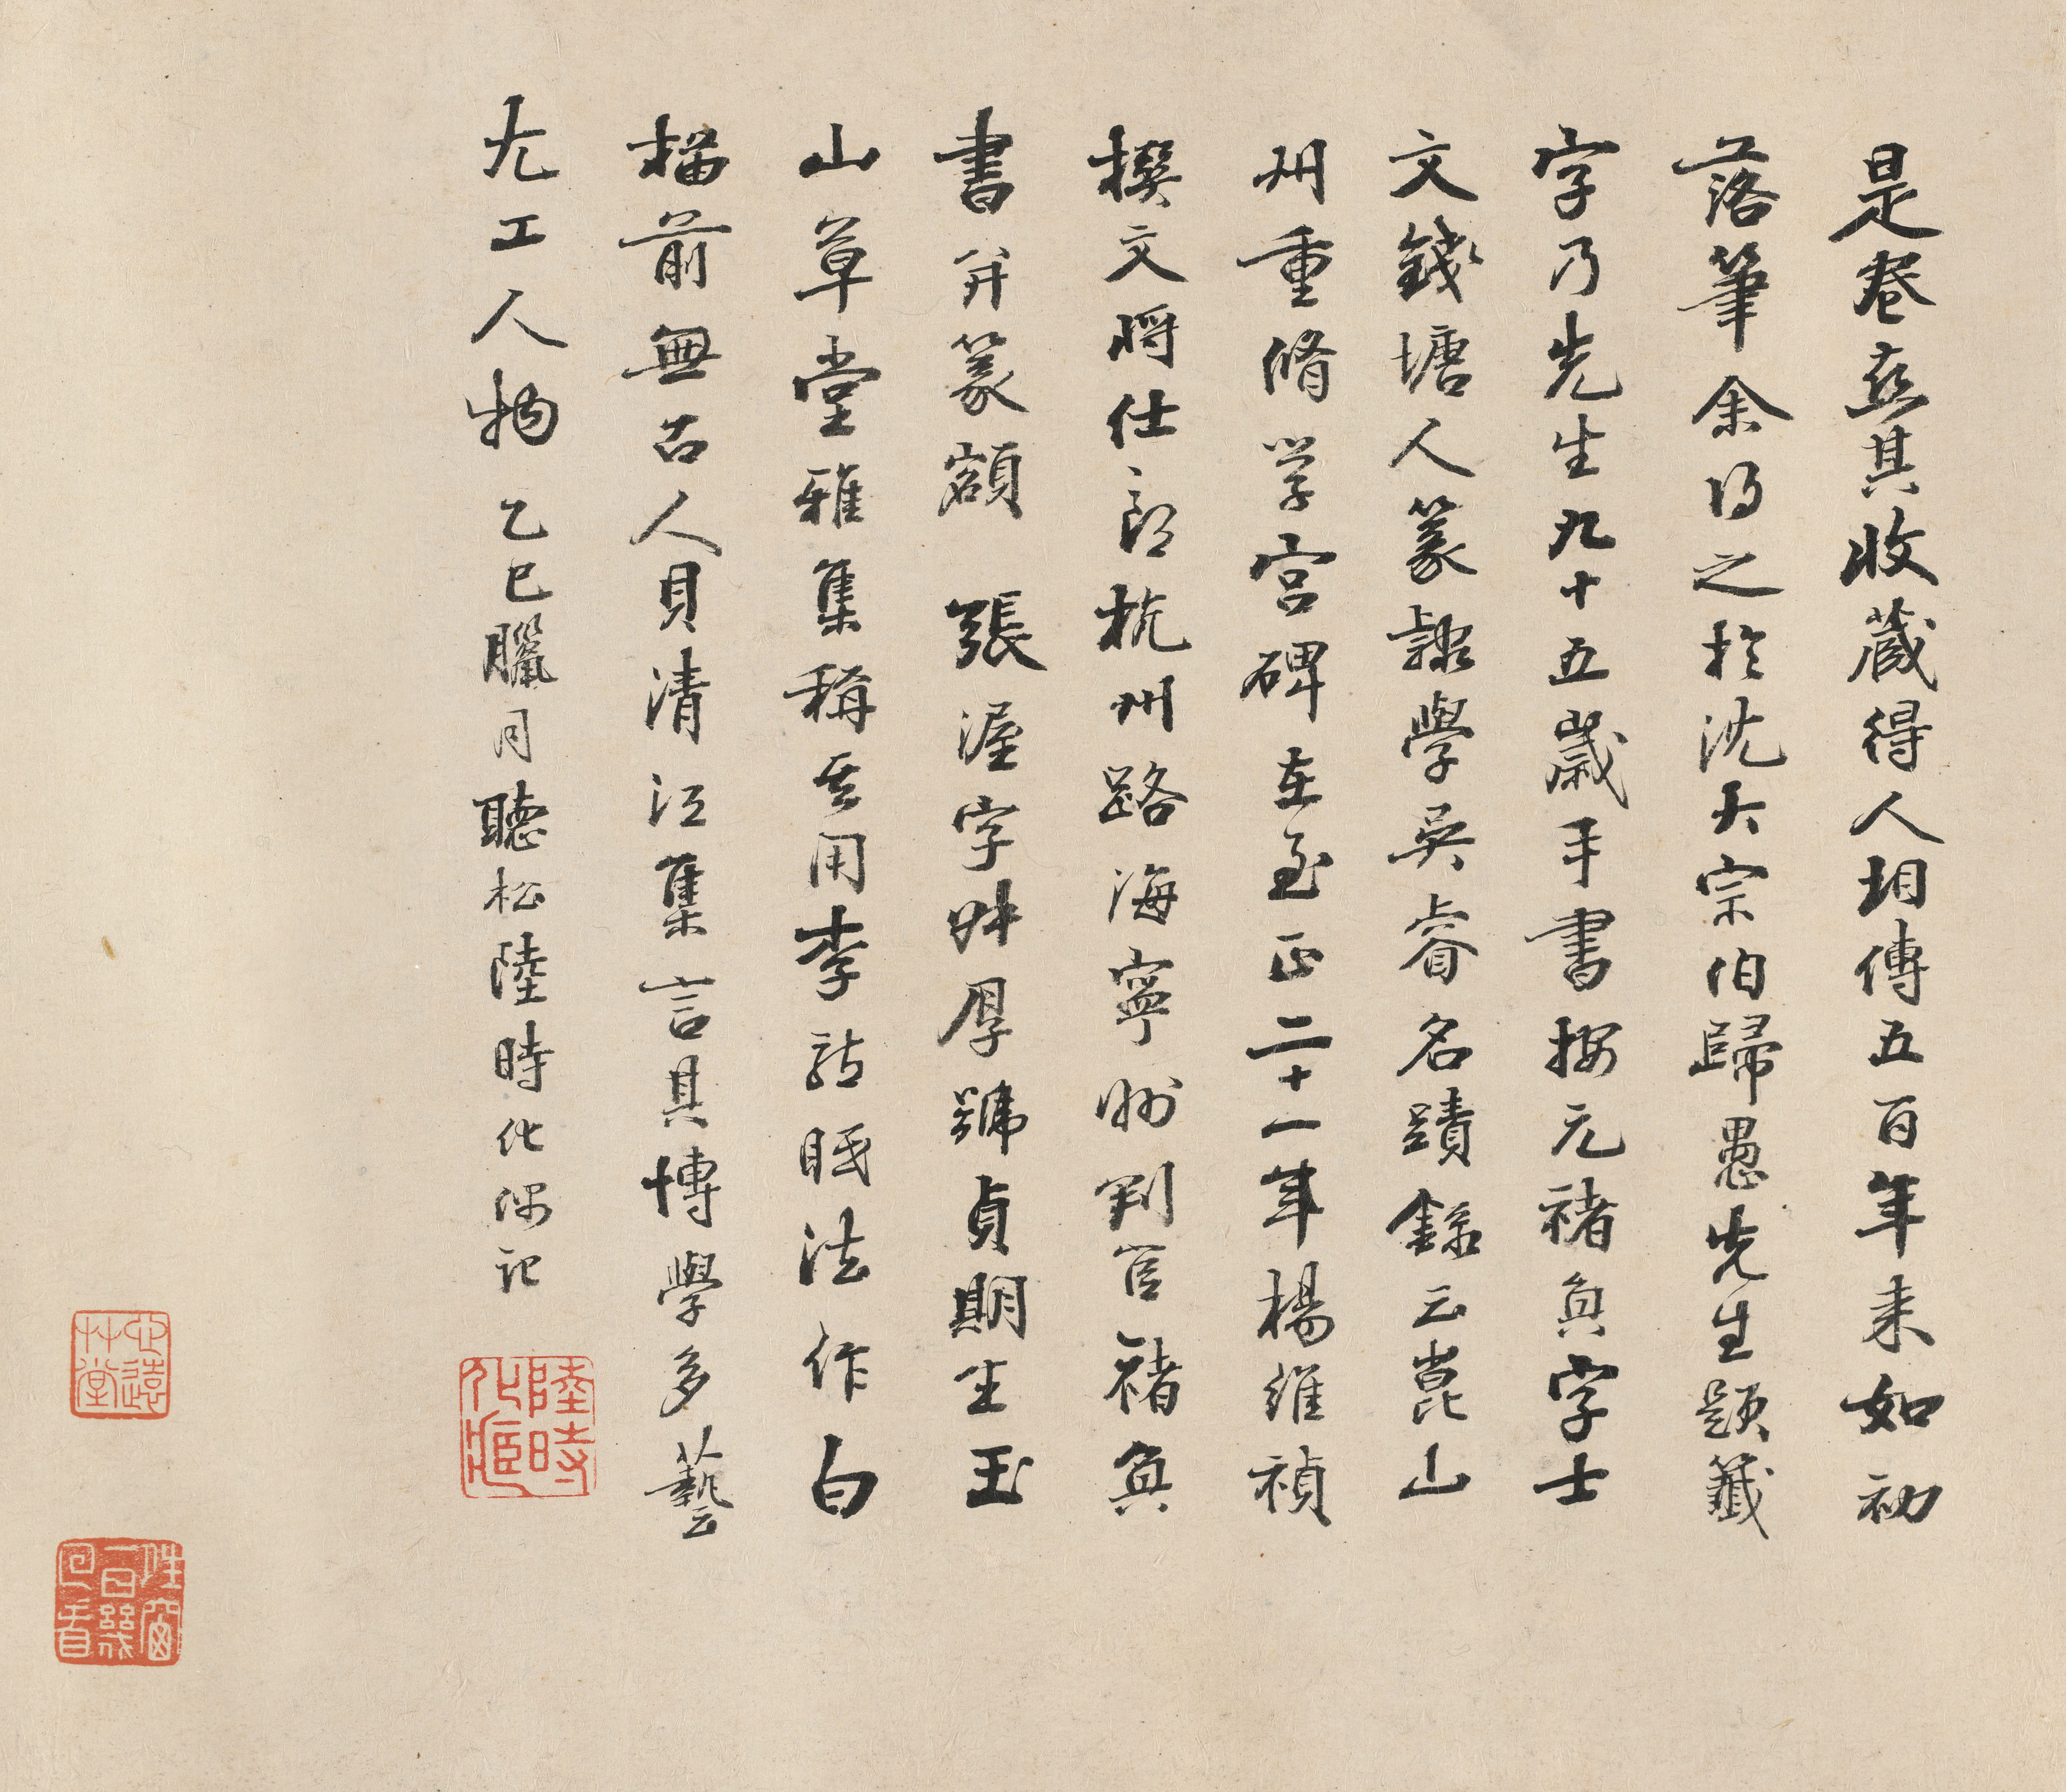 是卷亦其收藏得人相傳五百年來如初
落筆余得之於沈大宗伯歸愚先生題籤
字乃先生九十五歲手書按元褚奐字士
文錢塘人篆隸學吳睿名蹟錄云崑山
州重脩学宫碑在至正二十一年楊維禎
撰文將仕郎杭州路海寧州判官褚奐
書并篆額 張渥字叔厚號貞期生玉
山草堂雅集稱其用李龍眠法作白
描前無古人貝清江集言其博學多藝
尤工人物 乙巳臘月聽松陸時化偶記
陸時化臧
心遠草堂